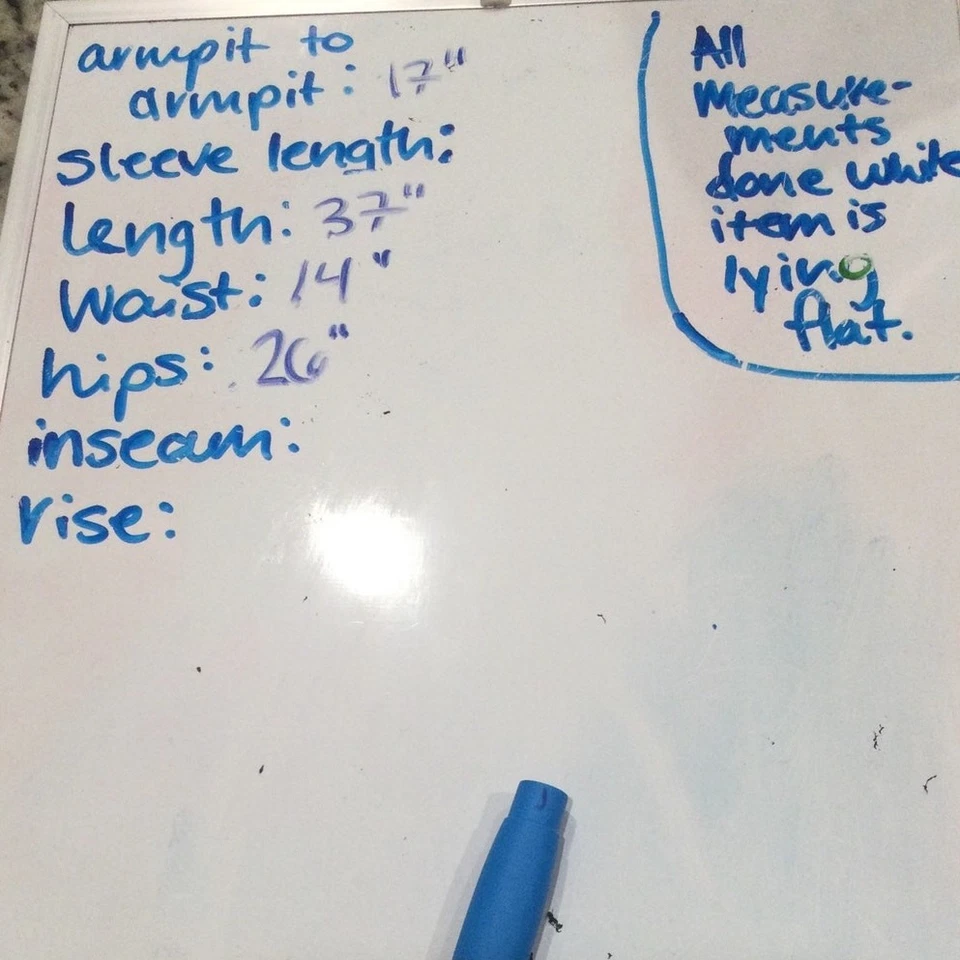 armpit to
armpit: 17"
sleeve length:
length: 37"
waist: 14"
hips: 26"
inseam:
rise:
All
measure-
ments
done while
item is
lying
flat.